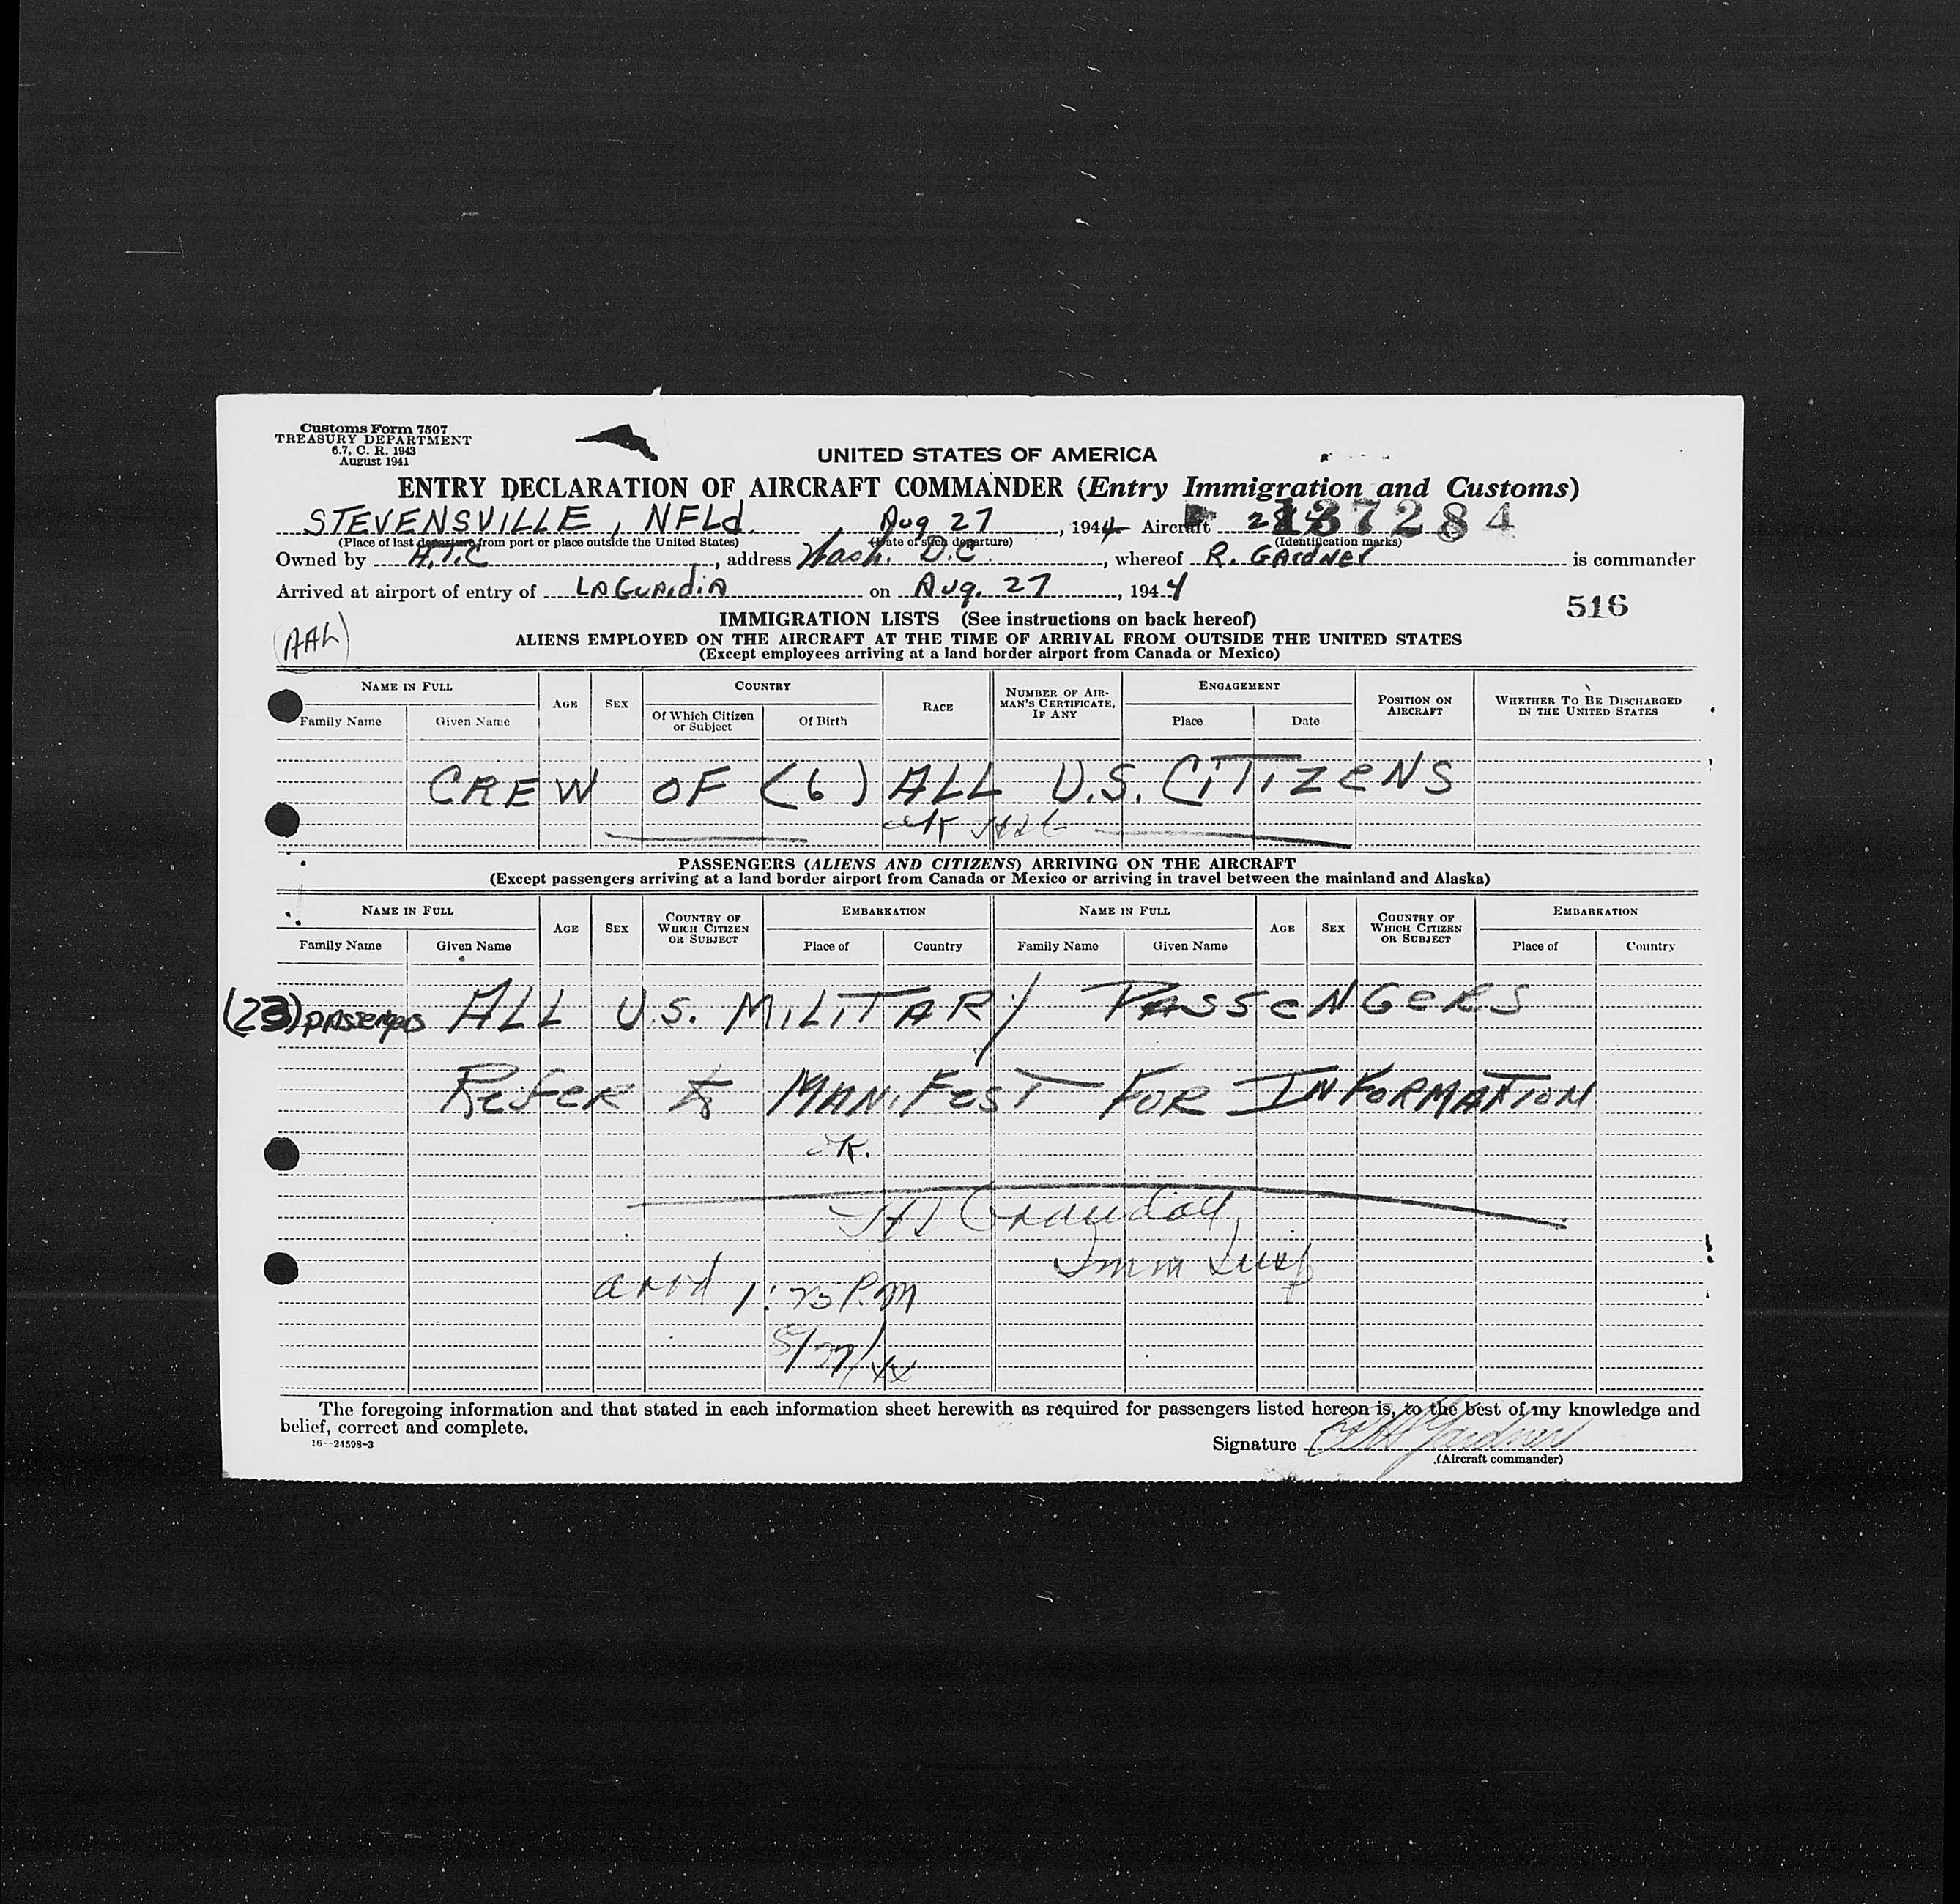 Customs Form 7507
TREASURY DEPARTMENT
6.7, C. R. 1943
August 1941
UNITED STATES OF AMERICA
ENTRY DECLARATION OF AIRCRAFT COMMANDER (Entry Immigration and Customs)
STEVENSVILLE, NFLd. , Aug 27 , 1944 Aircraft 137284
(Place of last departure from port or place outside the United States) (Date of such departure) (Identification marks)
Owned by A.T.C , address Wash. D.C. , whereof R. GARDNER is commander
Arrived at airport of entry of LAGUARdiA on Aug. 27 , 1944
516
IMMIGRATION LISTS (See instructions on back hereof)
(AAL)
ALIENS EMPLOYED ON THE AIRCRAFT AT THE TIME OF ARRIVAL FROM OUTSIDE THE UNITED STATES
(Except employees arriving at a land border airport from Canada or Mexico)
NAME IN FULL AGE SEX COUNTRY RACE NUMBER OF AIRMAN'S CERTIFICATE, IF ANY ENGAGEMENT POSITION ON AIRCRAFT WHETHER TO BE DISCHARGED IN THE UNITED STATES
Family Name Given Name Of Which Citizen or Subject Of Birth Place Date
CREW OF (6) ALL U.S. CITIZENS
ok
PASSENGERS (ALIENS AND CITIZENS) ARRIVING ON THE AIRCRAFT
(Except passengers arriving at a land border airport from Canada or Mexico or arriving in travel between the mainland and Alaska)
NAME IN FULL AGE SEX COUNTRY OF WHICH CITIZEN OR SUBJECT EMBARKATION NAME IN FULL AGE SEX COUNTRY OF WHICH CITIZEN OR SUBJECT EMBARKATION
Family Name Given Name Place of Country Family Name Given Name Place of Country
(23) passengers ALL U.S. MILITARY PASSENGERS
Refer to MANIFEST FOR INFORMATION
ok.
Crandall
Imm Insp
arrd 1:25 P.M
8/27/44
The foregoing information and that stated in each information sheet herewith as required for passengers listed hereon is, to the best of my knowledge and
belief, correct and complete.
16—24598-3
Signature Gardner
(Aircraft commander)